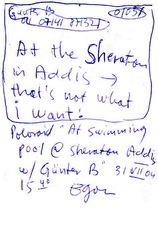 Günter B 01038
At the Sheraton
in Addis →
that's not what
i want!
Polaroid "At swimming
pool @ Sheraton Addis
w/ Günter B" 31 VII 04
15 40
Egon